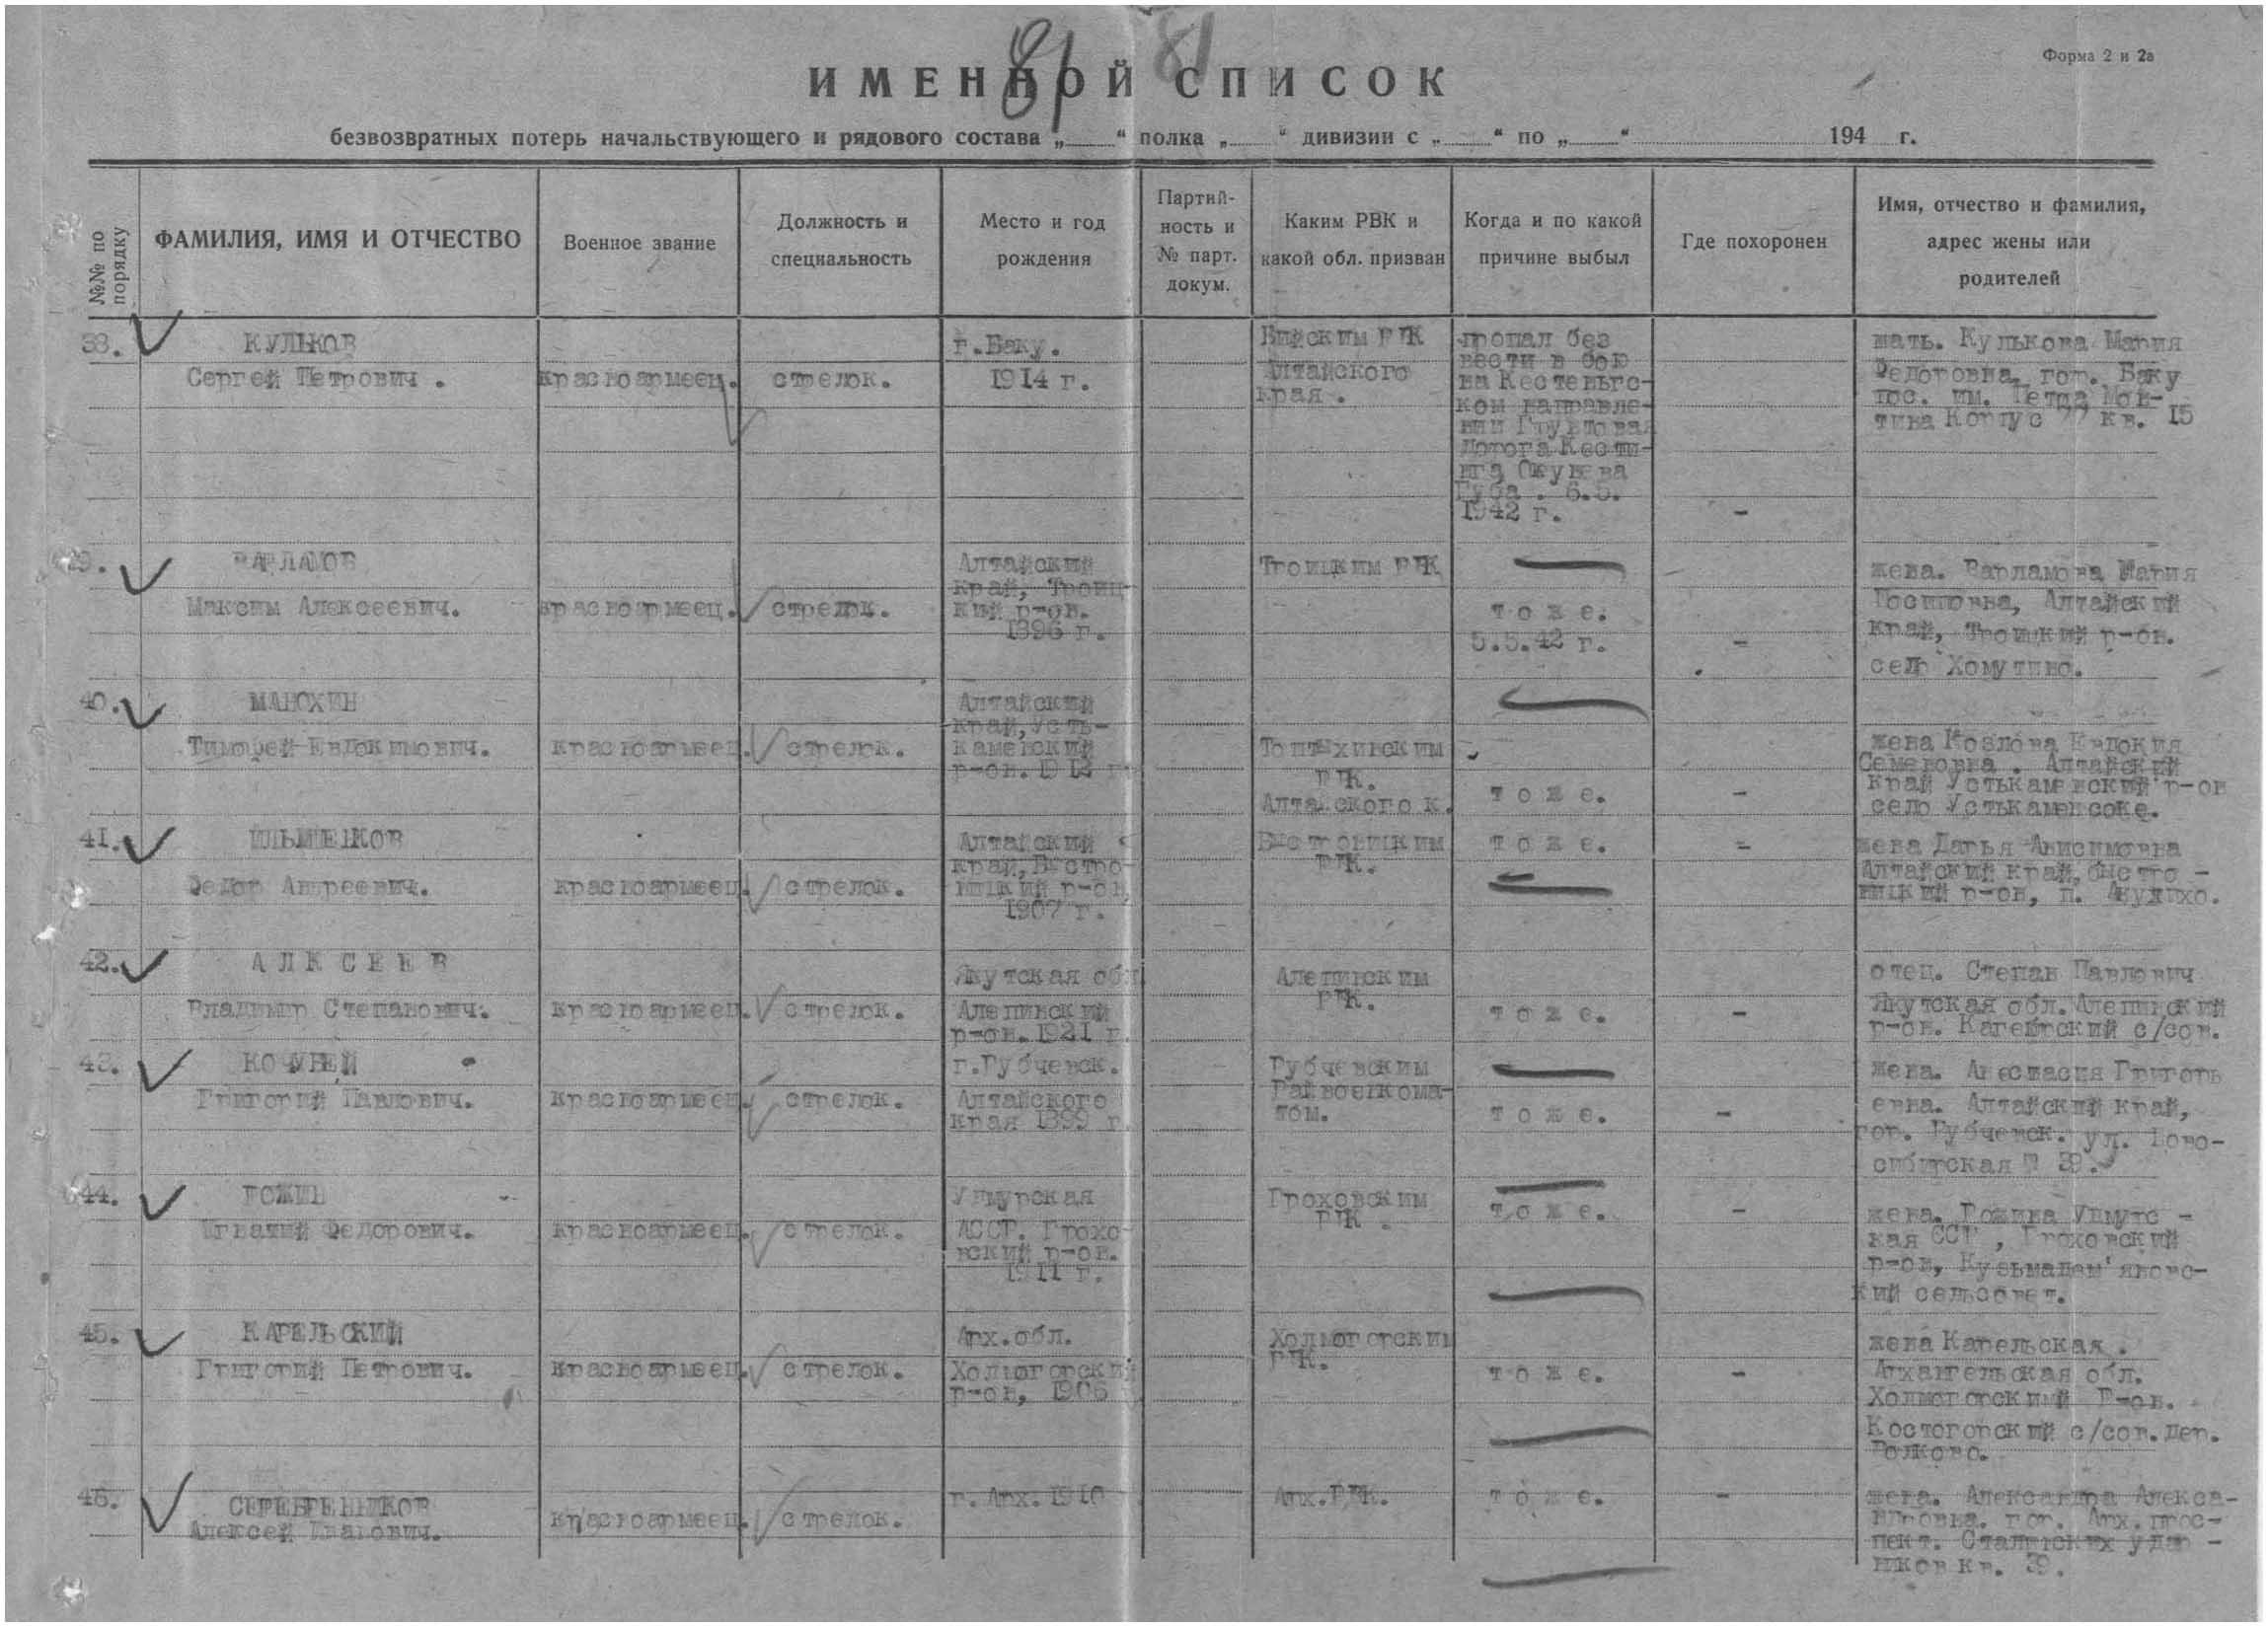 81 81
Форма 2 и 2а
ИМЕННОЙ СПИСОК
безвозвратных потерь начальствующего и рядового состава „ “ полка „ “ дивизии с „ “ по „ “ 194 г.
№№ по порядку
ФАМИЛИЯ, ИМЯ И ОТЧЕСТВО
Военное звание
Должность и
специальность
Место и год
рождения
Партий-
ность и
№ парт.
докум.
Каким РВК и
какой обл. призван
Когда и по какой
причине выбыл
Где похоронен
Имя, отчество и фамилия,
адрес жены или
родителей
38.
КУЛЬКОВ
Сергей Петрович.
красноармеец.
стрелок.
г.Баку.
1914 г.
Бийским РВК
Алтайского
края.
пропал без
вести в бою
на Кестеньгс-
ком направле-
нии Грунтовая
дорога Кести-
нга Окунева
Губа . 6.5.
1942 г.
-
мать. Кулькова Мария
Федоровна, гор. Баку
пос. им. Петра Мон-
тина Корпус 77 кв. 15
39.
ВАРЛАМОВ
Максим Алексеевич.
красноармеец.
стрелок.
Алтайский
край, Троиц-
кий р-он.
1896 г.
Троицким РВК
т о ж е.
5.5.42 г.
-
жена. Варламова Мария
Алтайский
край, Троицкий р-он.
село Хомутино.
40.
МАНОХИН
Тимофей Евдокимович.
красноармеец.
стрелок.
Алтайский
край,Усть-
каменский
р-он. 1912 г.
Топчихинским
РВК.
Алтайского к.
т о ж е.
-
жена Козлова Евдокия
Семеновна . Алтайский
край Устькаменский р-он
село Устькаменсоке.
41.
ИЛЬМЕНКОВ
Федор Андреевич.
красноармеец.
стрелок.
Алтайский
край,Быстро-
ницкий р-он,
1907 г.
Быстроницким
РВК.
т о ж е.
-
жена Дарья Анисимовна
Алтайский край, быстро -
ницкий р-он, п. Акулихо.
42.
А Л К С Е Е В
Владимир Степанович.
красноармеец.
стрелок.
Якутская обл
Алепинский
р-он. 1921 г.
Алепинским
РВК.
т о ж е.
-
отец. Степан Павлович
Якутская обл. Алепинский
р-он. с/сов.
43.
КОЧУБЕЙ
Григорий Павлович.
красноармеец.
стрелок.
г.Рубчевск.
Алтайского
края 1899 г.
Рубчевским
Райвоенкома-
том.
т о ж е.
-
жена. Анестасия Григорь
евна. Алтайский край,
гор. Рубчевск. ул. Ново-
сибирская № 39.
44.
РОЖИН
Игнатий Федорович.
красноармеец.
стрелок.
Удмурская
АССР. Грахо-
вский р-он.
1911 г.
Граховским
РВК .
т о ж е.
-
жена. Рожина Удмурс -
кая ССР , Граховский
р-он, Кузьмадем'яновс-
кий сельсовет.
45.
КАРЕЛЬСКИЙ
Григорий Петрович.
красноармеец.
стрелок.
Арх.обл.
Холмогорский
р-он, 1906
Холмогорским
РВК.
т о ж е.
-
жена Карельская .
Архангельская обл.
Холмогорскиий Р-он.
Костогорский с/сов. дер.
Волково.
46.
СЕРЕБРЕННИКОВ
Алексей Иванович.
красноармеец.
стрелок.
г. Арх. 1910
Арх.РВК.
т о ж е.
-
жена. Александра Алекса-
ндровна. гор. Арх. прос-
пект. Сталинских удар -
ников кв. 39.